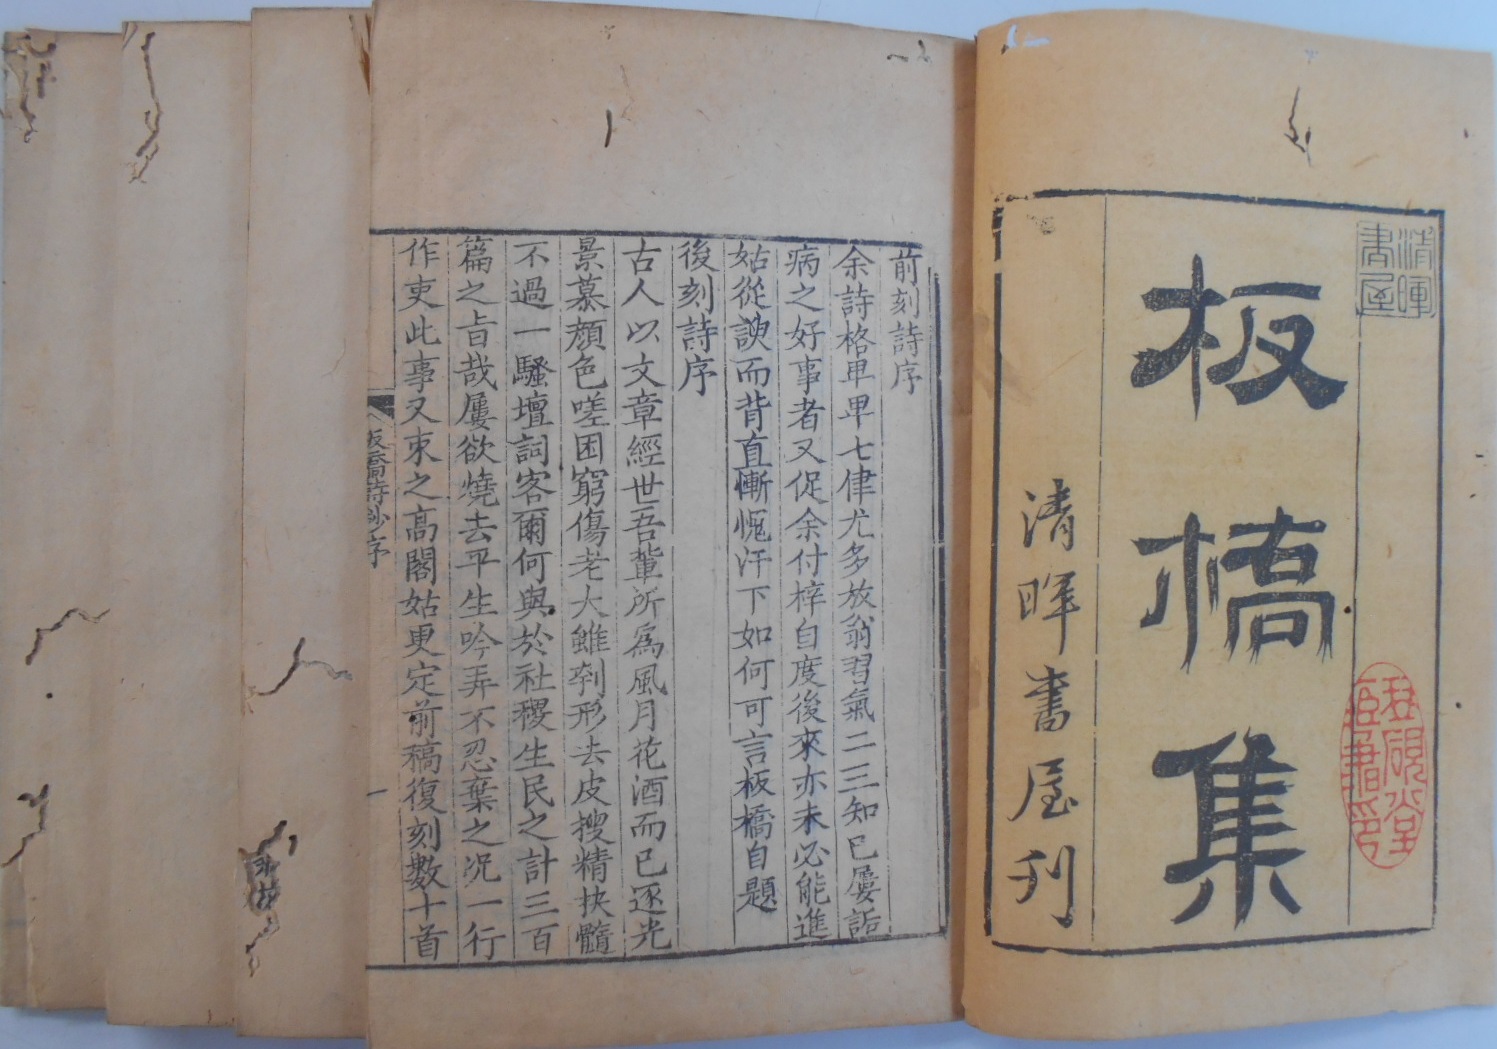 清暉書屋
板橋集
清暉書屋刊
前刻詩序
余詩格卑卑七律尤多放翁習氣二三知已屢詬
病之好事者又促余付梓自度後來亦未必能進
姑從諛而背直慚愧汗下如何可言板橋自題
後刻詩序
古人以文章經世吾輩所為風月花酒而已逐光
景慕顏色嗟困窮傷老大雖刳形去皮搜精抉髓
不過一騷壇詞客爾何與於社稷生民之計三百
篇之旨哉屢欲燒去平生吟弄不忍棄之况一行
作吏此事又束之高閣姑更定前稿復刻數十首
板橋詩鈔序
一